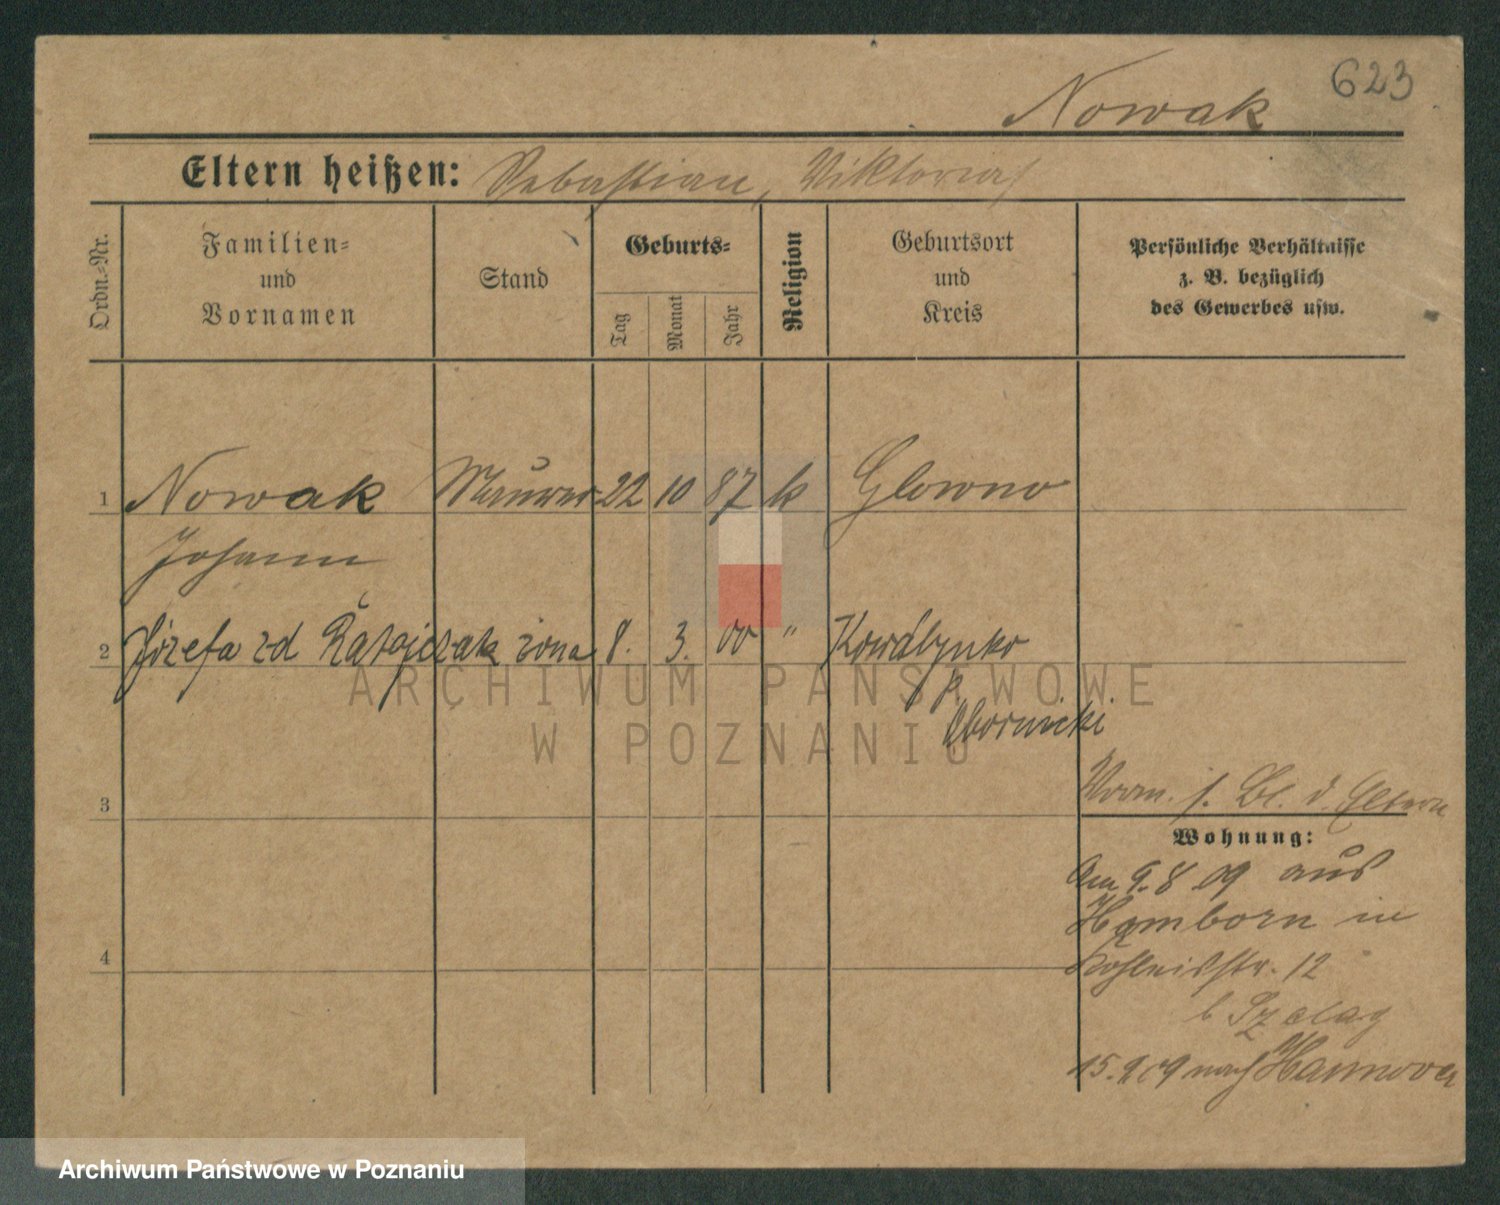 623
Nowak
Eltern heißen: Sebastian, Viktoria
Ordn.-Nr.
Familien-
und
Vornamen
Stand
Geburts-
Tag
Monat
Jahr
Religion
Geburtsort
und
Kreis
Persönliche Verhältnisse
z. B. bezüglich
des Gewerbes usw.
1 Nowak Maurer 22 10 87 k Glowno
Johann
2 Józefa zd Ratajczak żona 8. 3. 00 " Kowalynko
p.
Obornicki
3
Vorm. s. Bl. d. Eltern
Wohnung:
Am 9.8.09 aus
Hamborn in
12
4
b Szelag
15.9.09 nach Hannover
ARCHIWUM PAŃSTWOWE
W POZNANIU
Archiwum Państwowe w Poznaniu